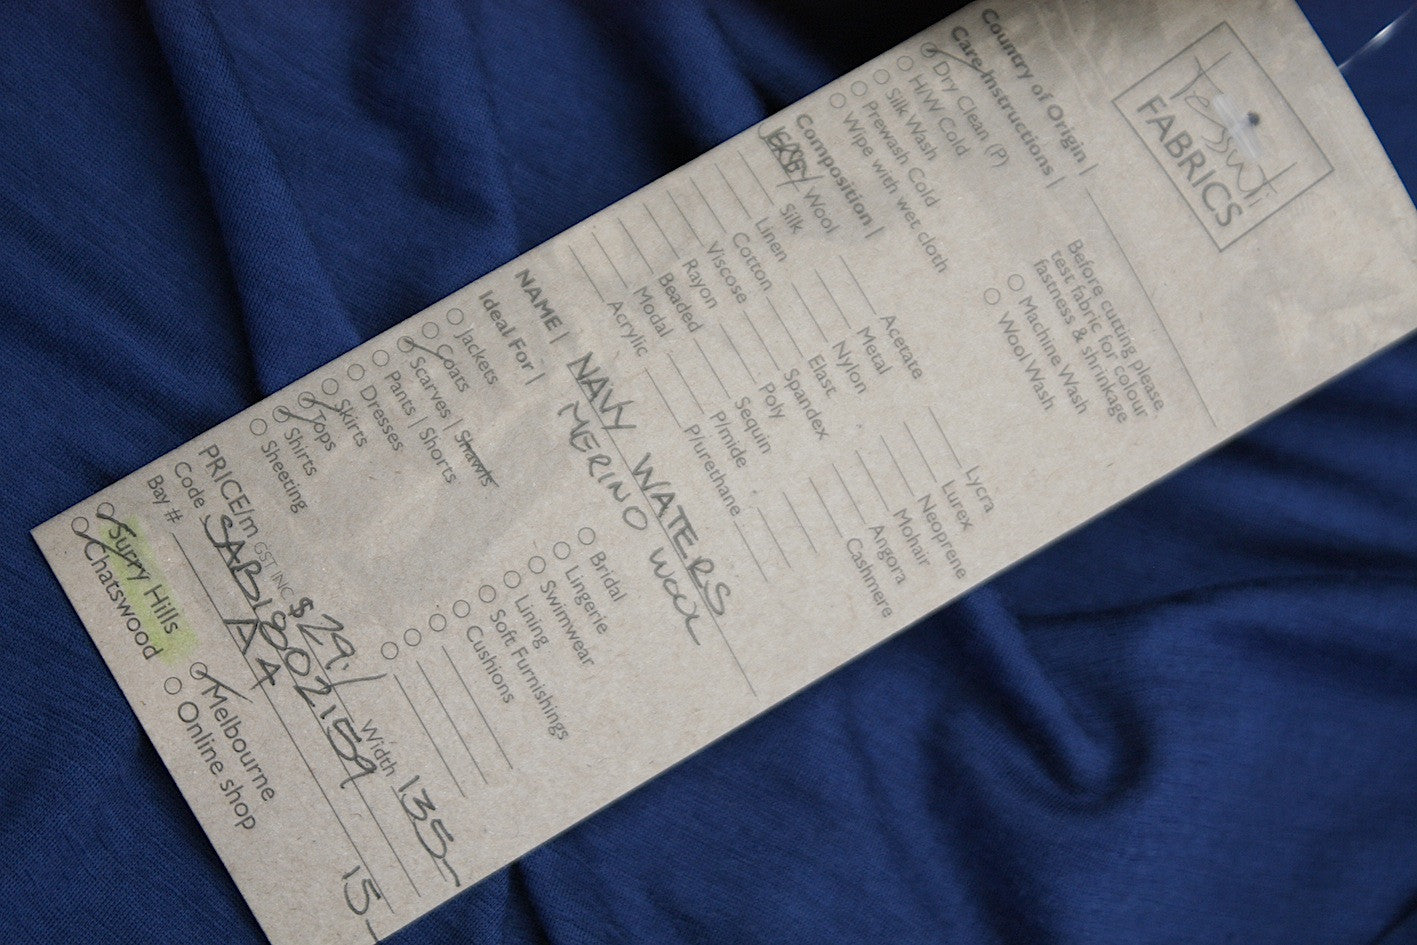 Tessuti
FABRICS
Country of Origin |
Care Instructions |
Dry Clean (P)
H/W Cold
Silk Wash
Prewash Cold
Wipe with wet cloth
Before cutting please
test fabric for colour
fastness & shrinkage
Machine Wash
Wool Wash
Composition |
JERSEY Wool
Silk
Linen
Cotton
Viscose
Rayon
Beaded
Modal
Acrylic
Acetate
Metal
Nylon
Elast
Spandex
Poly
Sequin
P/mide
P/urethane
Lycra
Lurex
Neoprene
Mohair
Angora
Cashmere
NAME | NAVY WATERS
MERINO WOOL
Ideal For |
Jackets
Coats
Scarves | Shawls
Pants | Shorts
Dresses
Skirts
Tops
Shirts
Sheeting
Bridal
Lingerie
Swimwear
Lining
Soft Furnishings
Cushions
PRICE/m GST INC $29./ Width 135
Code SAB19002159
Bay # AA 15
Surry Hills
Chatswood
Melbourne
Online shop